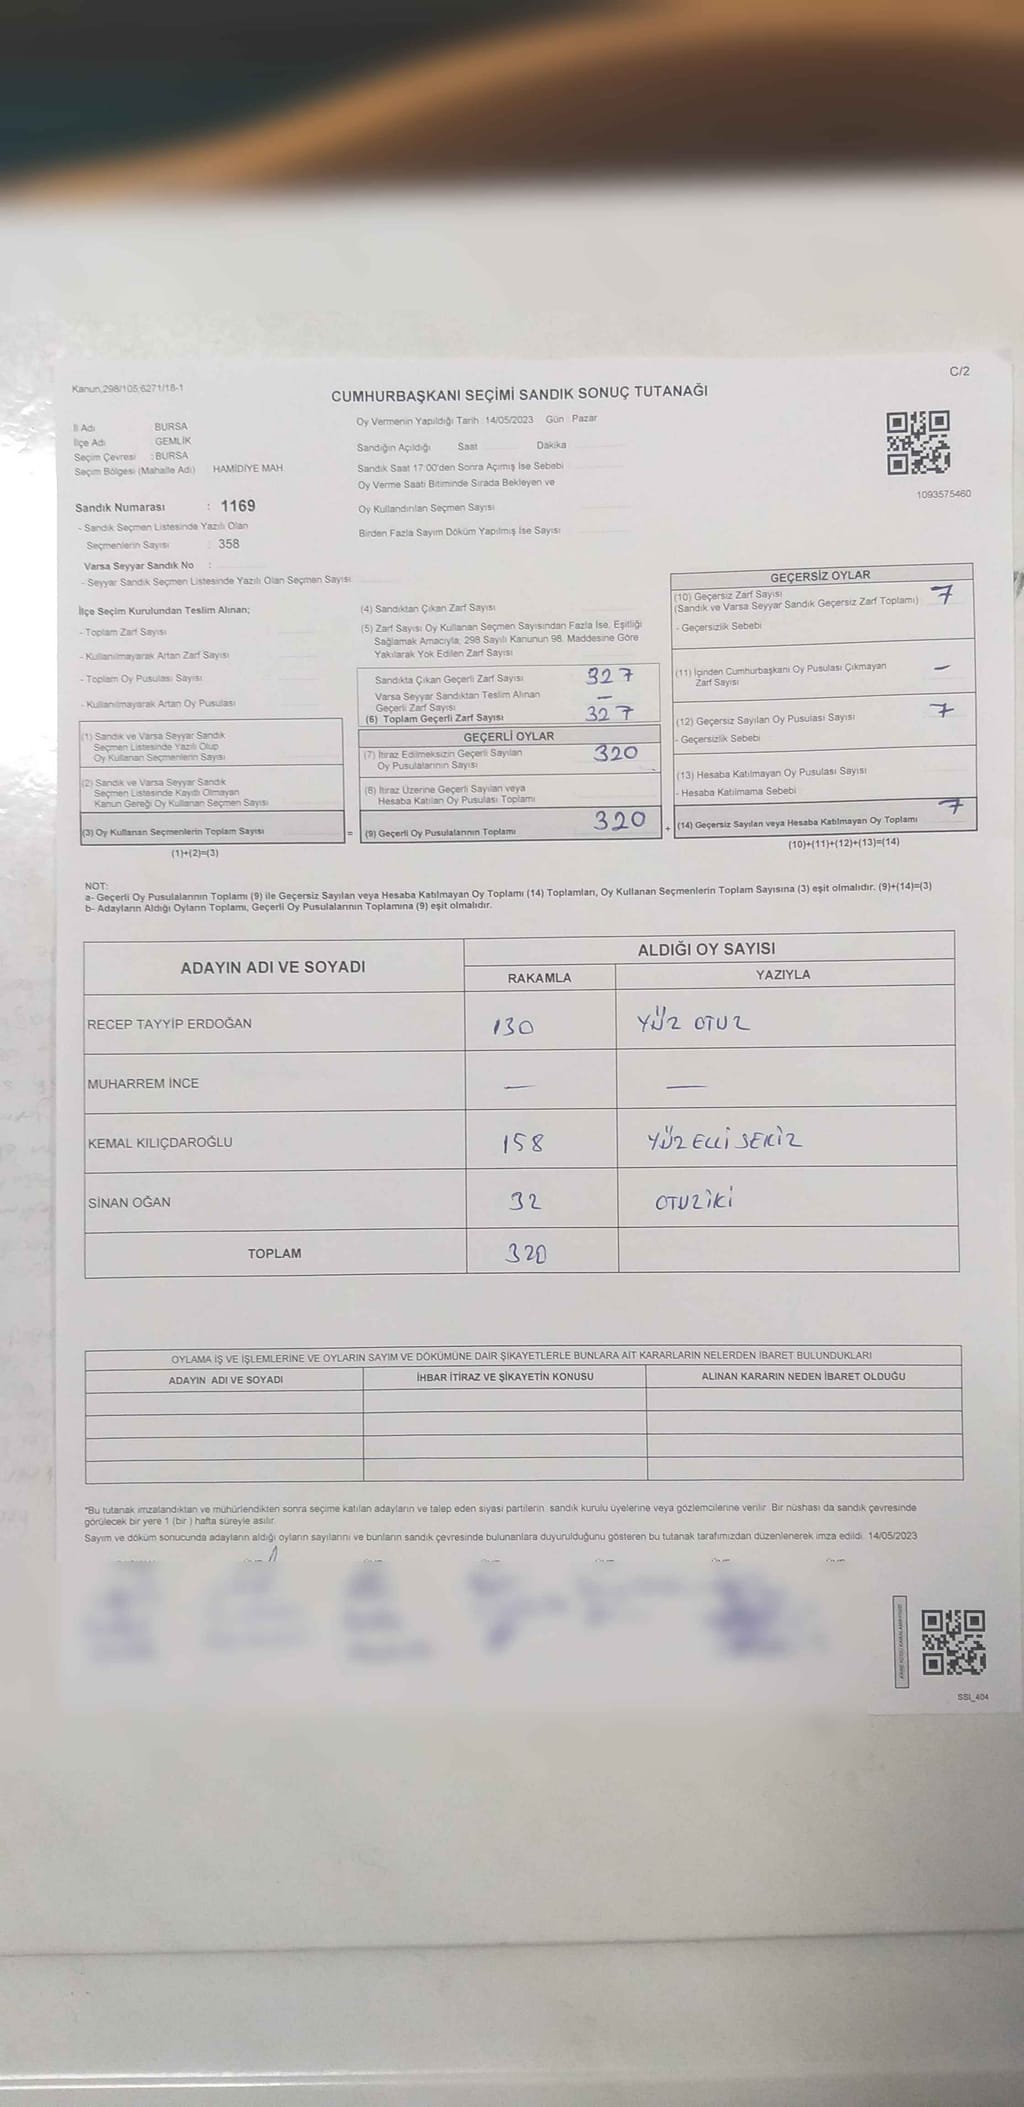 Kanun,298/105,6271/18-1
C/2
CUMHURBAŞKANI SEÇİMİ SANDIK SONUÇ TUTANAĞI
İl Adı BURSA
İlçe Adı GEMLİK
Seçim Çevresi : BURSA
Seçim Bölgesi (Mahalle Adı) HAMİDİYE MAH
Oy Vermenin Yapıldığı Tarih 14/05/2023 Gün Pazar
Sandığın Açıldığı Saat Dakika
Sandık Saat 17:00'den Sonra Açımış İse Sebebi
Oy Verme Saati Bitiminde Sırada Bekleyen ve
Oy Kullandırılan Seçmen Sayısı
Birden Fazla Sayım Döküm Yapılmış İse Sayısı
1093575460
Sandık Numarası : 1169
- Sandık Seçmen Listesinde Yazılı Olan
Seçmenlerin Sayısı 358
Varsa Seyyar Sandık No :
- Seyyar Sandık Seçmen Listesinde Yazılı Olan Seçmen Sayısı
İlçe Seçim Kurulundan Teslim Alınan;
- Toplam Zarf Sayısı
- Kullanılmayarak Artan Zarf Sayısı
- Toplam Oy Pusulası Sayısı
- Kullanılmayarak Artan Oy Pusulası
(1) Sandık ve Varsa Seyyar Sandık
Seçmen Listesinde Yazılı Olup
Oy Kullanan Seçmenlerin Sayısı
(2) Sandık ve Varsa Seyyar Sandık
Seçmen Listesinde Kayıtlı Olmayan
Kanun Gereği Oy Kullanan Seçmen Sayısı
(3) Oy Kullanan Seçmenlerin Toplam Sayısı =
(1)+(2)=(3)
(4) Sandıktan Çıkan Zarf Sayısı
(5) Zarf Sayısı Oy Kullanan Seçmen Sayısından Fazla İse, Eşitliği
Sağlamak Amacıyla, 298 Sayılı Kanunun 98. Maddesine Göre
Yakılarak Yok Edilen Zarf Sayısı
Sandıkta Çıkan Geçerli Zarf Sayısı 327
Varsa Seyyar Sandıktan Teslim Alınan
Geçerli Zarf Sayısı —
(6) Toplam Geçerli Zarf Sayısı 327
GEÇERLİ OYLAR
(7) İtiraz Edilmeksizin Geçerli Sayılan
Oy Pusulalarının Sayısı 320
(8) İtiraz Üzerine Geçerli Sayılan veya
Hesaba Katılan Oy Pusulası Toplamı
(9) Geçerli Oy Pusulalarının Toplamı 320 +
GEÇERSİZ OYLAR
(10) Geçersiz Zarf Sayısı
(Sandık ve Varsa Seyyar Sandık Geçersiz Zarf Toplamı) 7
- Geçersizlik Sebebi
(11) İçinden Cumhurbaşkanı Oy Pusulası Çıkmayan
Zarf Sayısı —
(12) Geçersiz Sayılan Oy Pusulası Sayısı 7
- Geçersizlik Sebebi
(13) Hesaba Katılmayan Oy Pusulası Sayısı
- Hesaba Katılmama Sebebi
(14) Geçersiz Sayılan veya Hesaba Katılmayan Oy Toplamı 7
(10)+(11)+(12)+(13)=(14)
NOT:
a- Geçerli Oy Pusulalarının Toplamı (9) ile Geçersiz Sayılan veya Hesaba Katılmayan Oy Toplamı (14) Toplamları, Oy Kullanan Seçmenlerin Toplam Sayısına (3) eşit olmalıdır. (9)+(14)=(3)
b- Adayların Aldığı Oyların Toplamı, Geçerli Oy Pusulalarının Toplamına (9) eşit olmalıdır.
ADAYIN ADI VE SOYADI ALDIĞI OY SAYISI
RAKAMLA YAZIYLA
RECEP TAYYİP ERDOĞAN 130 YÜZ OTUZ
MUHARREM İNCE — —
KEMAL KILIÇDAROĞLU 158 YÜZ ELLİ SEKİZ
SİNAN OĞAN 32 OTUZ İKİ
TOPLAM 320
OYLAMA İŞ VE İŞLEMLERİNE VE OYLARIN SAYIM VE DÖKÜMÜNE DAİR ŞİKAYETLERLE BUNLARA AİT KARARLARIN NELERDEN İBARET BULUNDUKLARI
ADAYIN ADI VE SOYADI İHBAR İTİRAZ VE ŞİKAYETİN KONUSU ALINAN KARARIN NEDEN İBARET OLDUĞU
*Bu tutanak imzalandıktan ve mühürlendikten sonra seçime katılan adayların ve talep eden siyasi partilerin sandık kurulu üyelerine veya gözlemcilerine verilir. Bir nüshası da sandık çevresinde
görülecek bir yere 1 (bir ) hafta süreyle asılır.
Sayım ve döküm sonucunda adayların aldığı oyların sayılarını ve bunların sandık çevresinde bulunanlara duyurulduğunu gösteren bu tutanak tarafımızdan düzenlenerek imza edildi. 14/05/2023
SSI_404